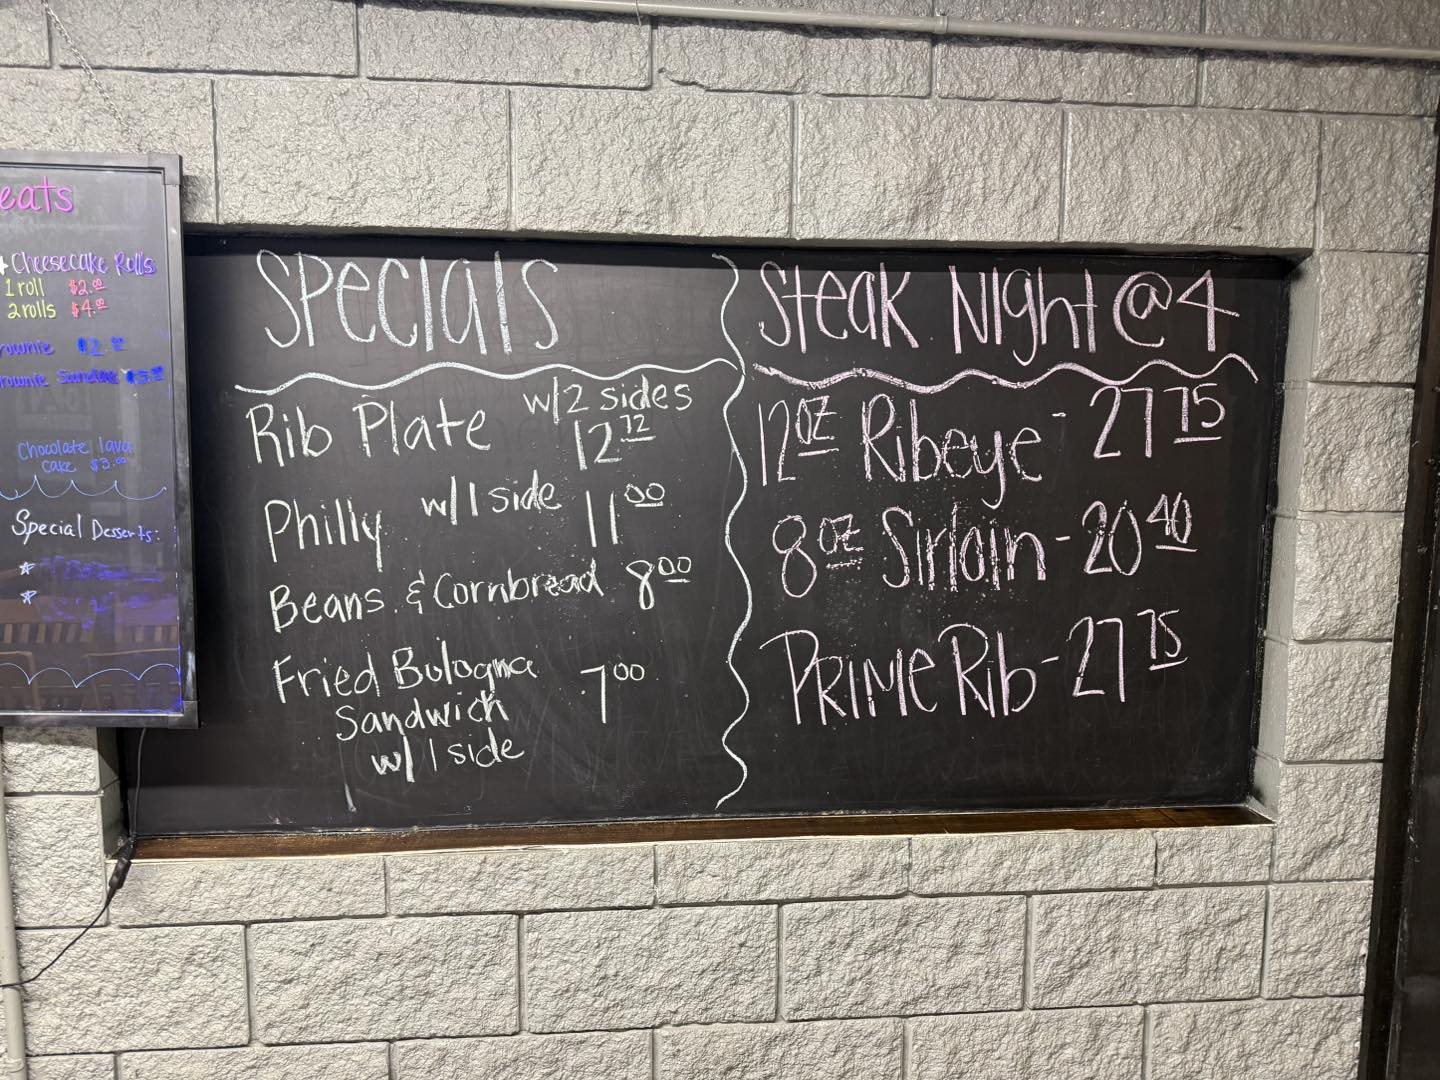 eats
Cheesecake Rolls
1 roll $2.00
2 rolls $4.00
rownie $2.00
rownie Sundae $5.00
Chocolate lava
cake $3.00
Special Desserts:
Specials
Rib Plate w/2 sides 12.72
Philly w/1 side 11.00
Beans & Cornbread 8.00
Fried Bologna 7.00
Sandwich
w/1 side
Steak Night @ 4
12oz Ribeye - 27.75
8oz Sirloin - 20.40
Prime Rib - 27.75